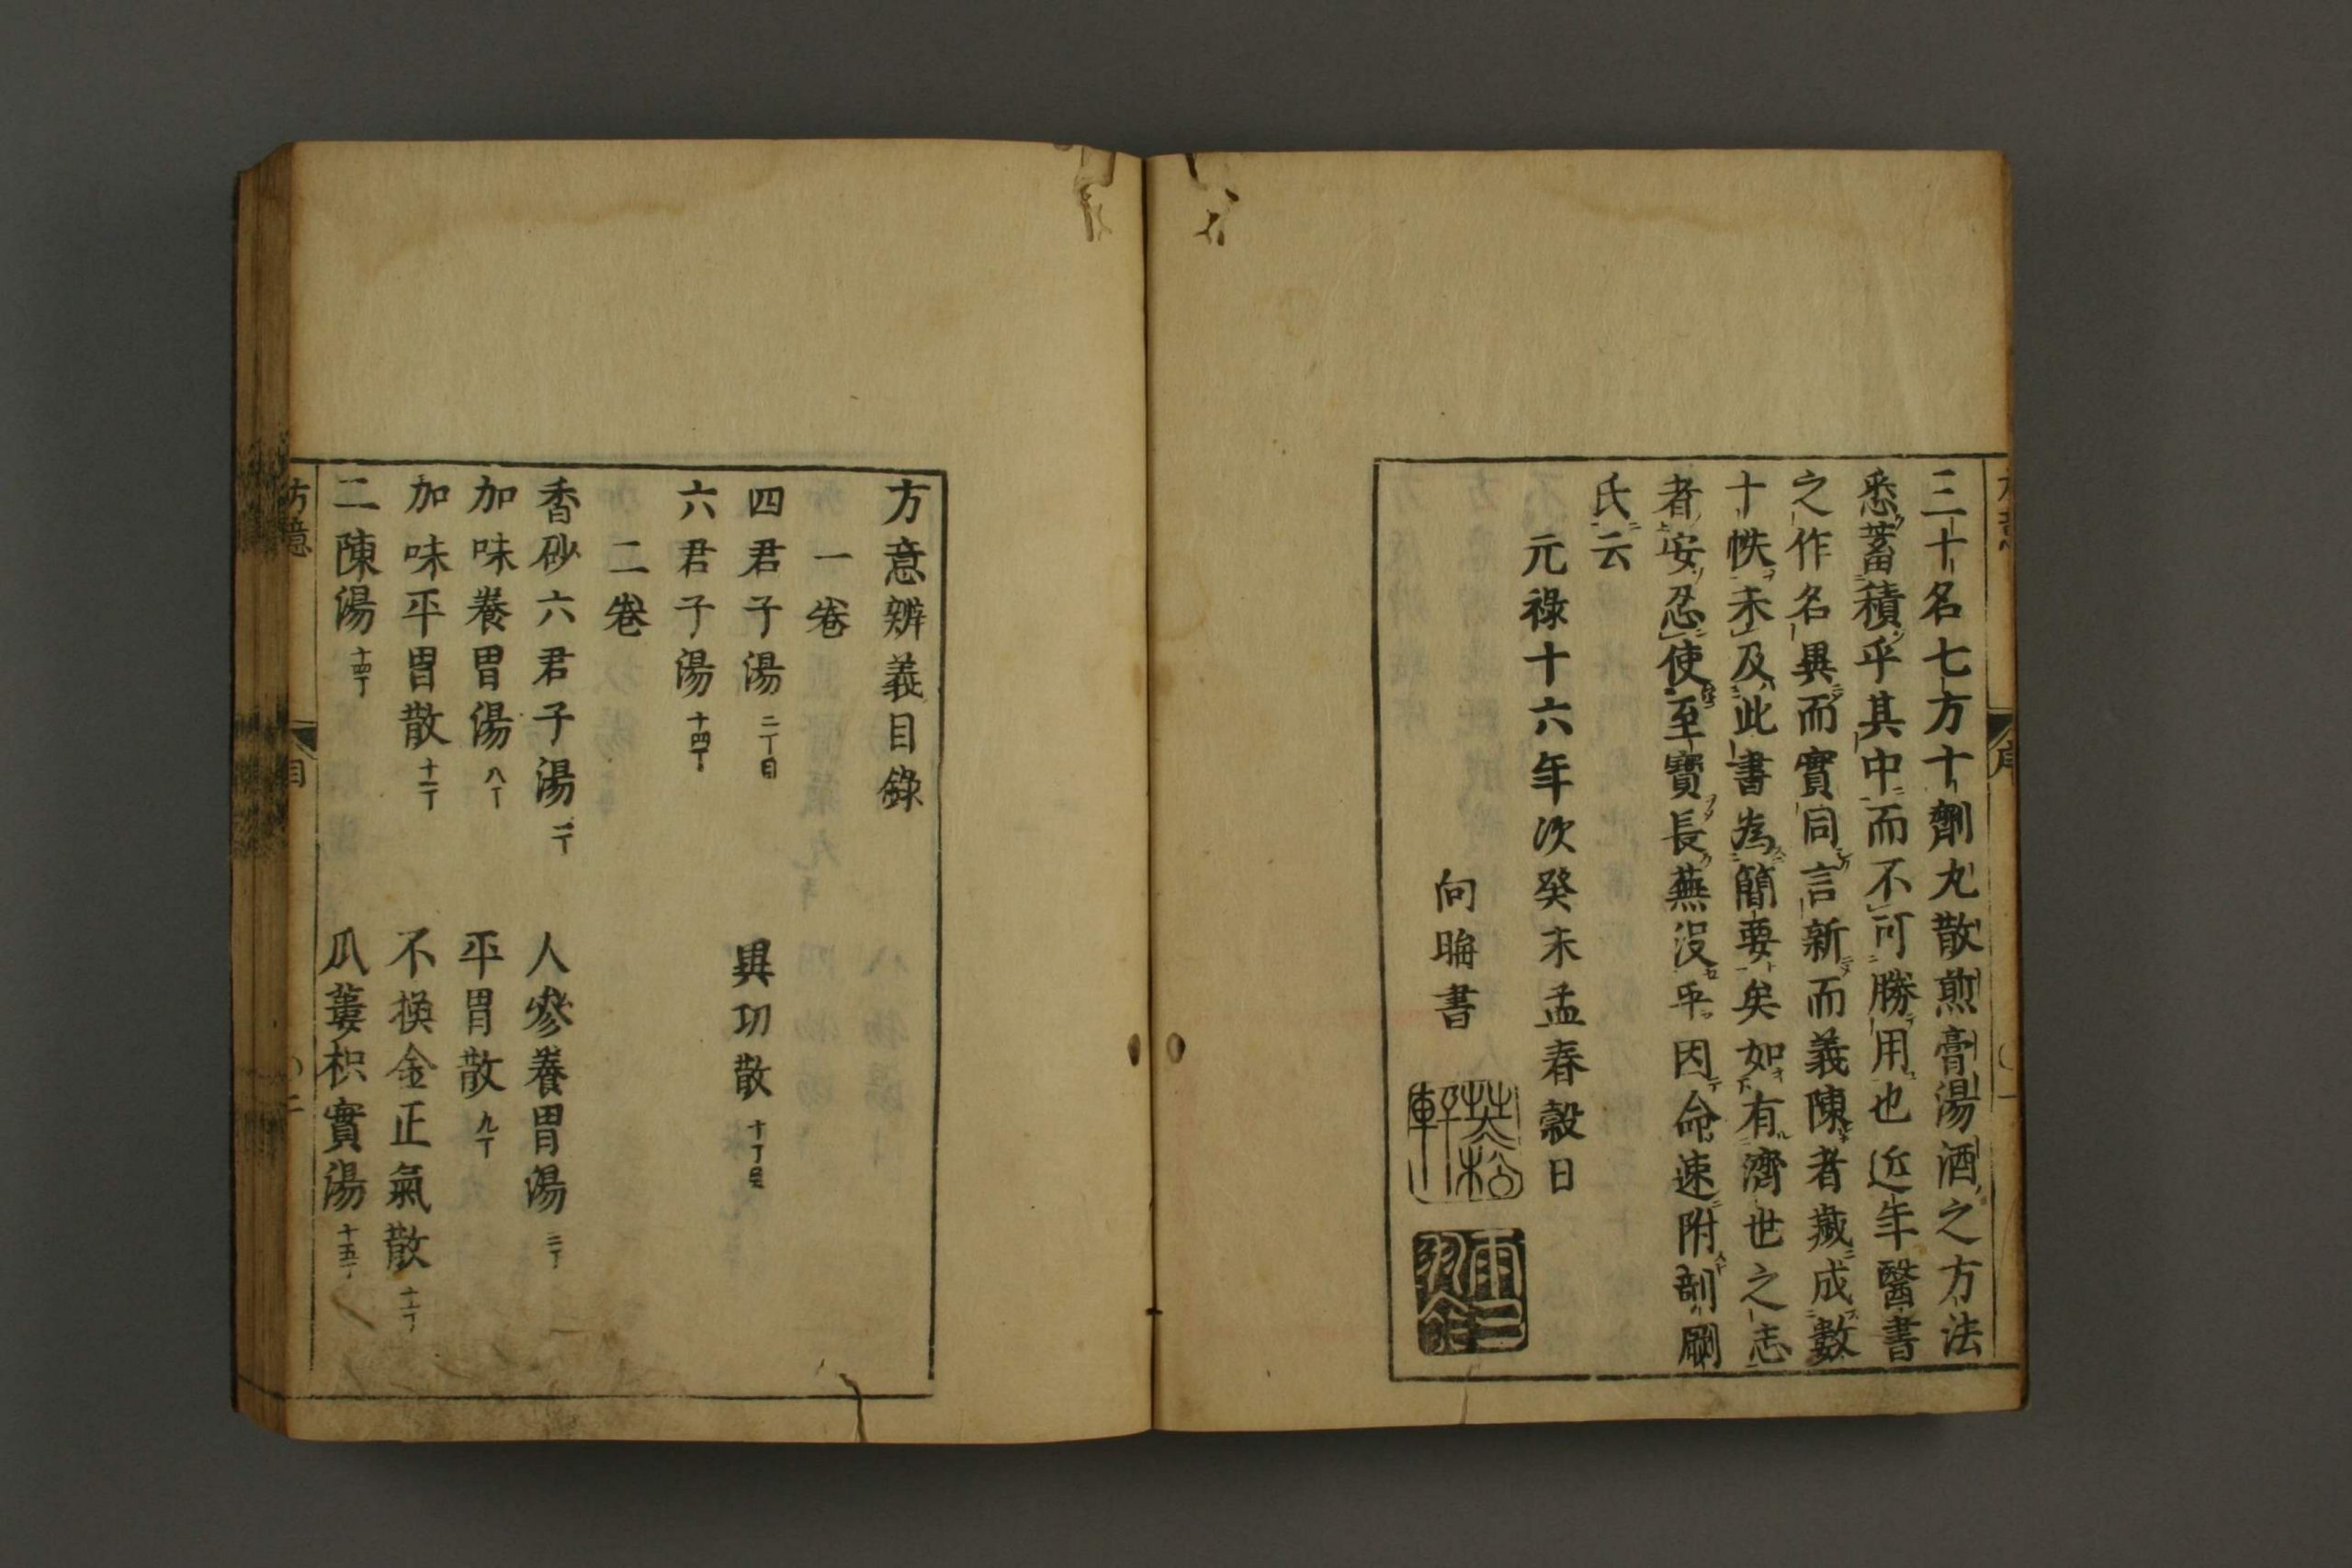 三十名七方十劑丸散煎膏湯酒之方法
悉蓄積乎其中而不可勝用也近年醫書
之作名異而實同言新而義陳者藏成數
十帙未及此書為簡要矣如有濟世之志
者安忍使至寶長蕪没乎因命速附剞劂
氏云
元祿十六年次癸未孟春穀日
向晦書
方意辨義目錄
一卷
四君子湯 二丁目
異功散 十丁目
六君子湯 十四丁
二卷
香砂六君子湯 一丁
人參養胃湯 三丁
加味養胃湯 八丁
平胃散 九丁
加味平胃散 十一丁
不換金正氣散 十二丁
二陳湯 十四丁
瓜蔞枳實湯 十五丁
方意
目